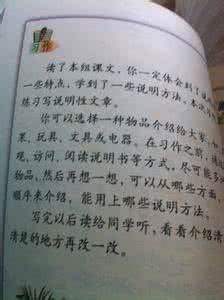 习作
读了本组课文，你一定体会到了说
一些特点，学到了一些说明方法。本次
练习写说明性文章。
你可以选择一种物品介绍给大家，如
果、玩具、文具或电器。在习作之前，
观、访问、阅读说明书等方式，尽可能多
物品，然后再想一想，可以从哪些方面，
顺序来介绍，能用上哪些说明方法。
写完以后读给同学听，看看介绍清
清楚的地方再改一改。